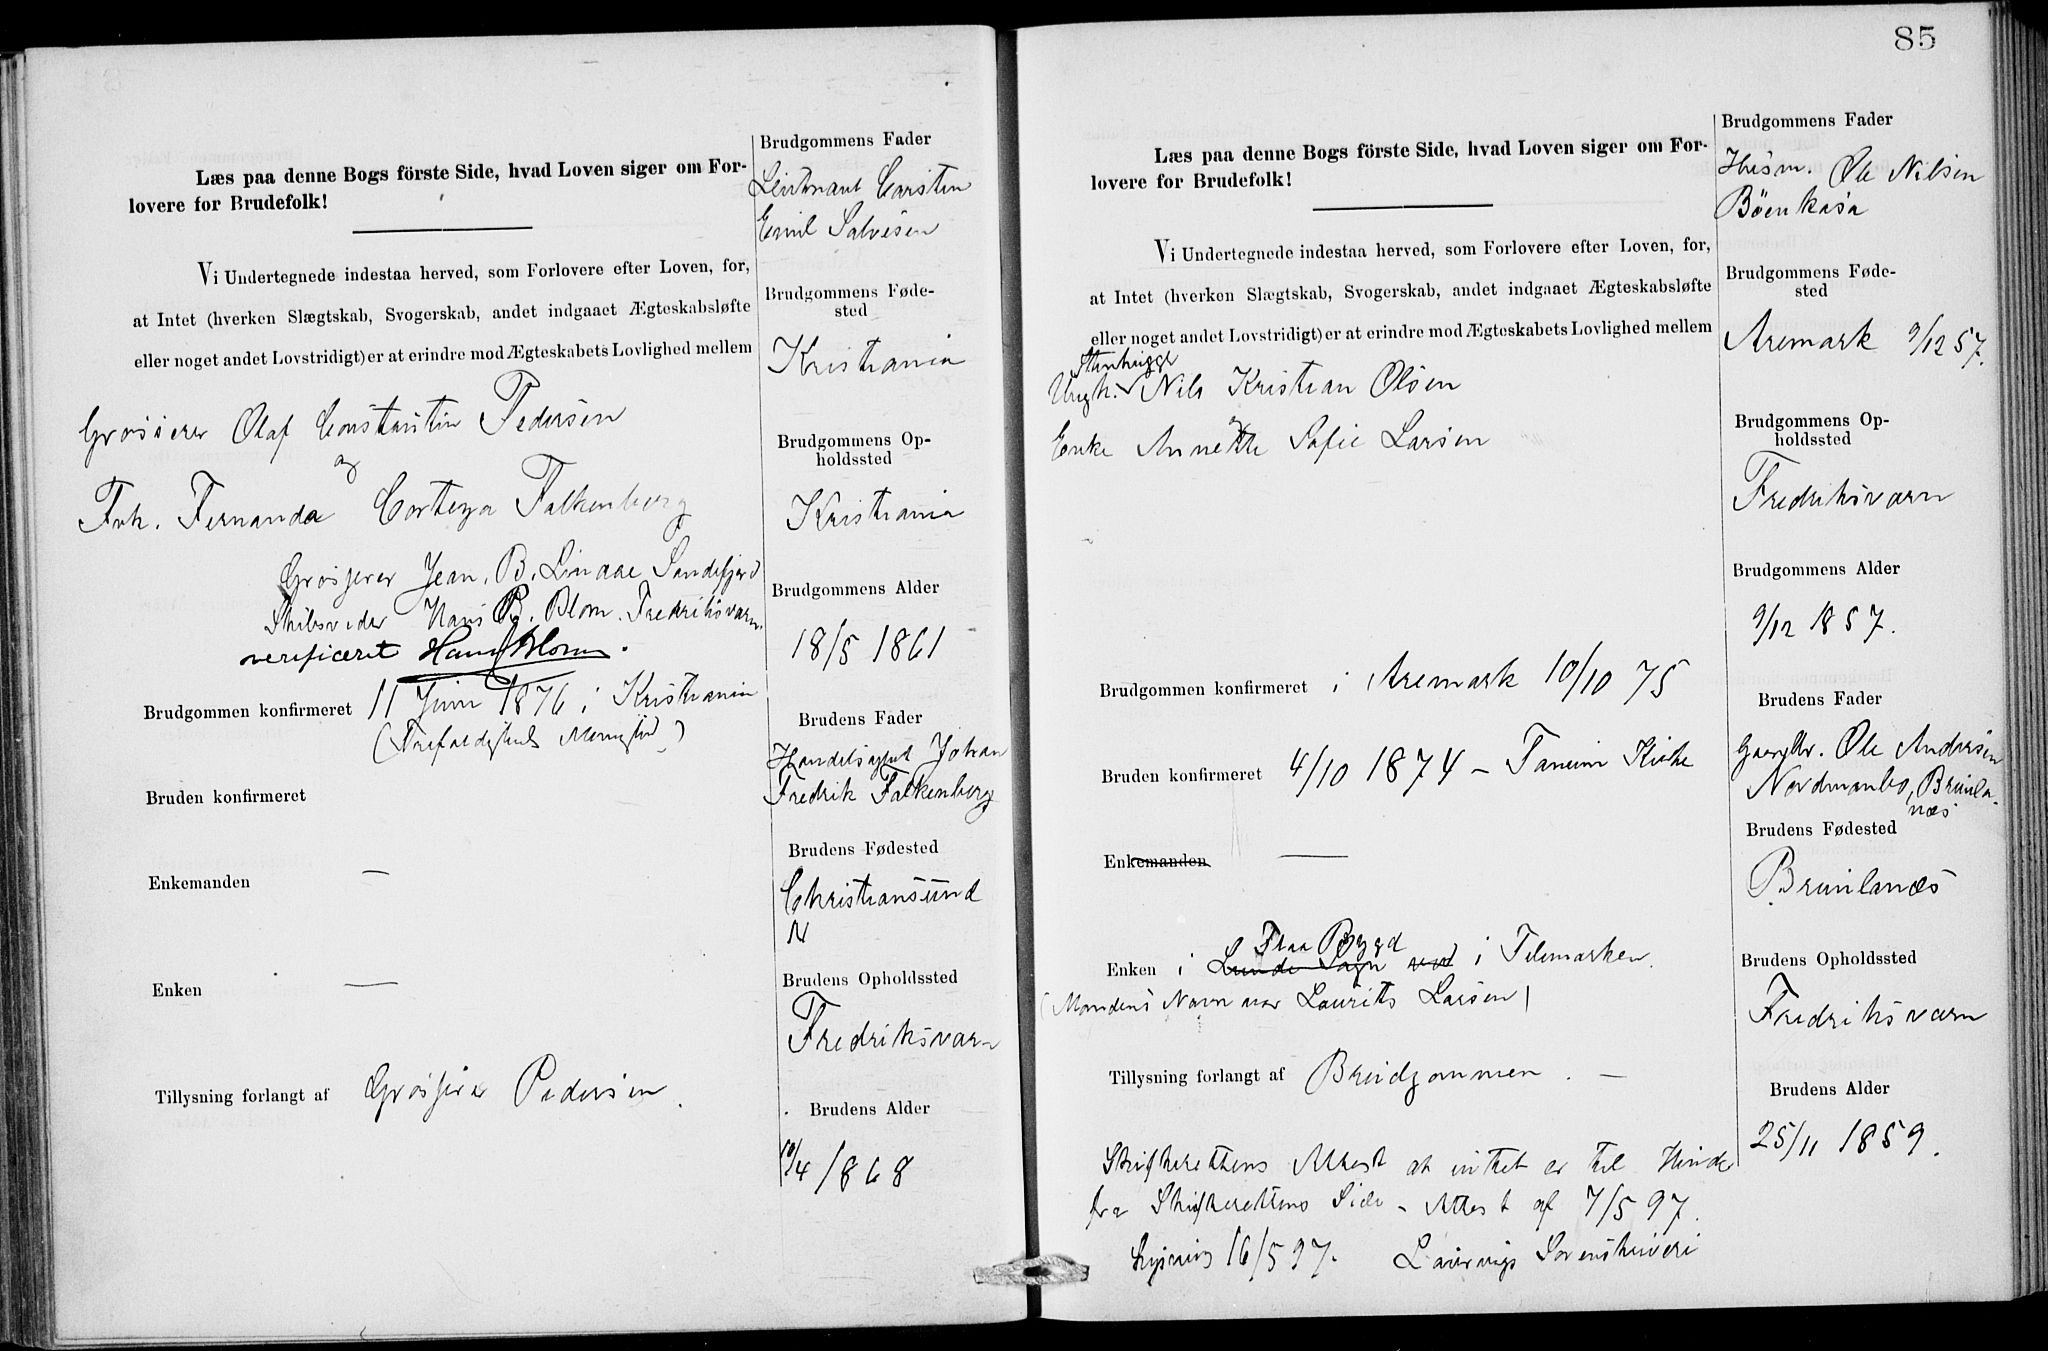 Læs paa denne Bogs förste Side, hvad Loven siger om For-
lovere for Brudefolk!
Vi Undertegnede indestaa herved, som Forlovere efter Loven, for,
at Intet (hverken Slægtskab, Svogerskab, andet indgaaet Ægteskabsløfte
eller noget andet Lovstridigt) er at erindre mod Ægteskabets Lovlighed mellem
Grosserer Olaf Constantin Pedersen
og
Frk. Fernanda Corteza Falkenberg
Grosserer Jean. B. Linaae Sandefjord
Skibsreder Hans B. Blom. Fredriksværn.
verificeret Hans Blom.
Brudgommen konfirmeret 11 Juni 1876 i Kristiania
(Trefoldigheds Menighed)
Bruden konfirmeret
Enkemanden —
Enken —
Tillysning forlangt af Grosserer Pedersen.
Brudgommens Fader
Lieutnant Carsten
Emil Salvesen
Brudgommens Føde-
sted
Kristiania
Brudgommens Op-
holdssted
Kristiania
Brudgommens Alder
18/5 1861
Brudens Fader
Handelsagent Johan
Fredrik Falkenberg
Brudens Fødested
Christianssund
N
Brudens Opholdssted
Fredriksværn
Brudens Alder
/4 1868
85
Læs paa denne Bogs förste Side, hvad Loven siger om For-
lovere for Brudefolk!
Vi Undertegnede indestaa herved, som Forlovere efter Loven, for,
at Intet (hverken Slægtskab, Svogerskab, andet indgaaet Ægteskabsløfte
eller noget andet Lovstridigt) er at erindre mod Ægteskabets Lovlighed mellem
Stenhugger
Ungk. Nils Kristian Olsen
og
Enke Annette Sofie Larsen
Brudgommen konfirmeret i Aremark 10/10 75
Bruden konfirmeret 4/10 1874 – Tanum Kirke
Enkemanden —
Flaa Bygd
Enken i Lunde Sogn ved i Telemarken.
(Mandens Navn var Laurits Larsen)
Tillysning forlangt af Brudgommen. —
Skifterettens Attest at intet er til Hinder
fra Skifterettens Side – Attest af 7/5 97.
Lysning 16/5 97. Laurvigs Sorenskriveri
Brudgommens Fader
Husm. Ole Nilsen
Böenkasa
Brudgommens Føde-
sted
Aremark 9/12 57.
Brudgommens Op-
holdssted
Fredriksværn
Brudgommens Alder
9/12 1857.
Brudens Fader
Gaardbr. Ole Andersen
Nordmanbo, Brunla-
næs
Brudens Fødested
Brunlanæs
Brudens Opholdssted
Fredriksværn
Brudens Alder
25/11 1859.